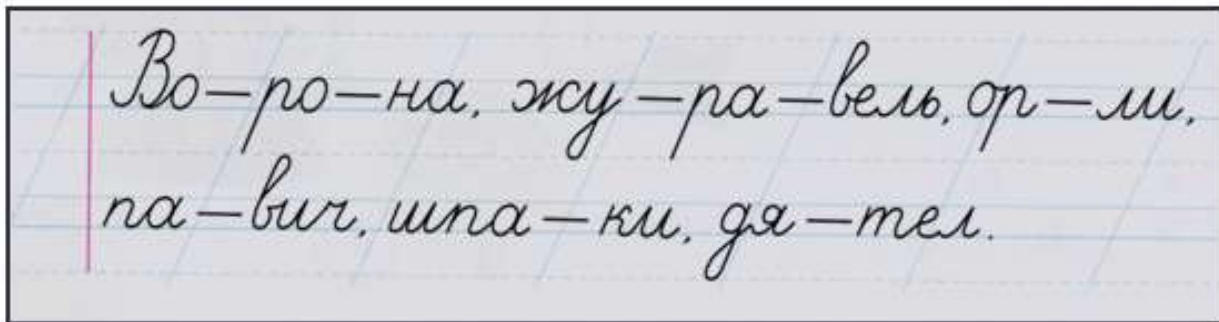 Во–ро–на, жу–ра–вель, ор–ли,
па–вич, шпа–ки, дя–тел.